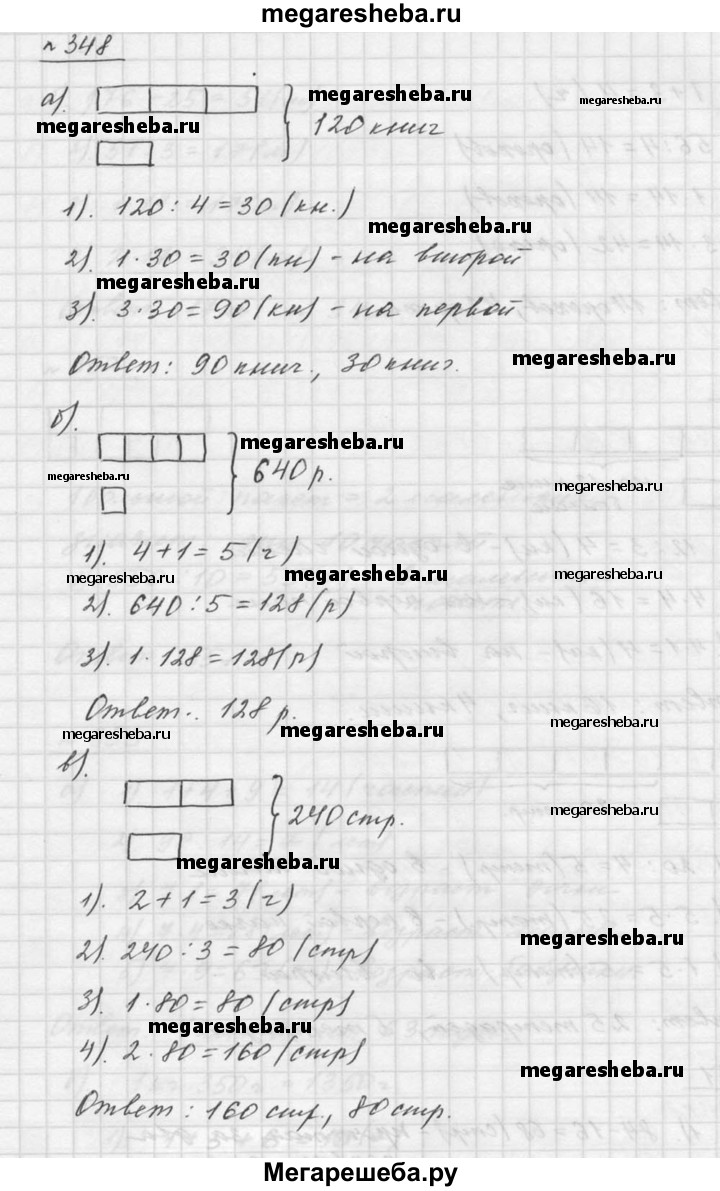 megaresheba.ru
№ 348
а).
megaresheba.ru
megaresheba.ru
megaresheba.ru
120 книг
1). 120 : 4 = 30 (кн.)
megaresheba.ru
2). 1 · 30 = 30 (кн) - на второй
megaresheba.ru
3). 3 · 30 = 90 (кн) - на первой
Ответ: 90 книг., 30 книг.
megaresheba.ru
б).
megaresheba.ru
megaresheba.ru
640 р.
megaresheba.ru
1). 4 + 1 = 5 (ч)
megaresheba.ru
megaresheba.ru
megaresheba.ru
2). 640 : 5 = 128 (р)
3). 1 · 128 = 128 (р)
Ответ.. 128 р.
megaresheba.ru
megaresheba.ru
megaresheba.ru
в).
240 стр.
megaresheba.ru
megaresheba.ru
1). 2 + 1 = 3 (ч)
2). 240 : 3 = 80 (стр)
megaresheba.ru
3). 1 · 80 = 80 (стр)
megaresheba.ru
4). 2 · 80 = 160 (стр)
megaresheba.ru
Ответ: 160 стр., 80 стр.
Мегарешеба.ру